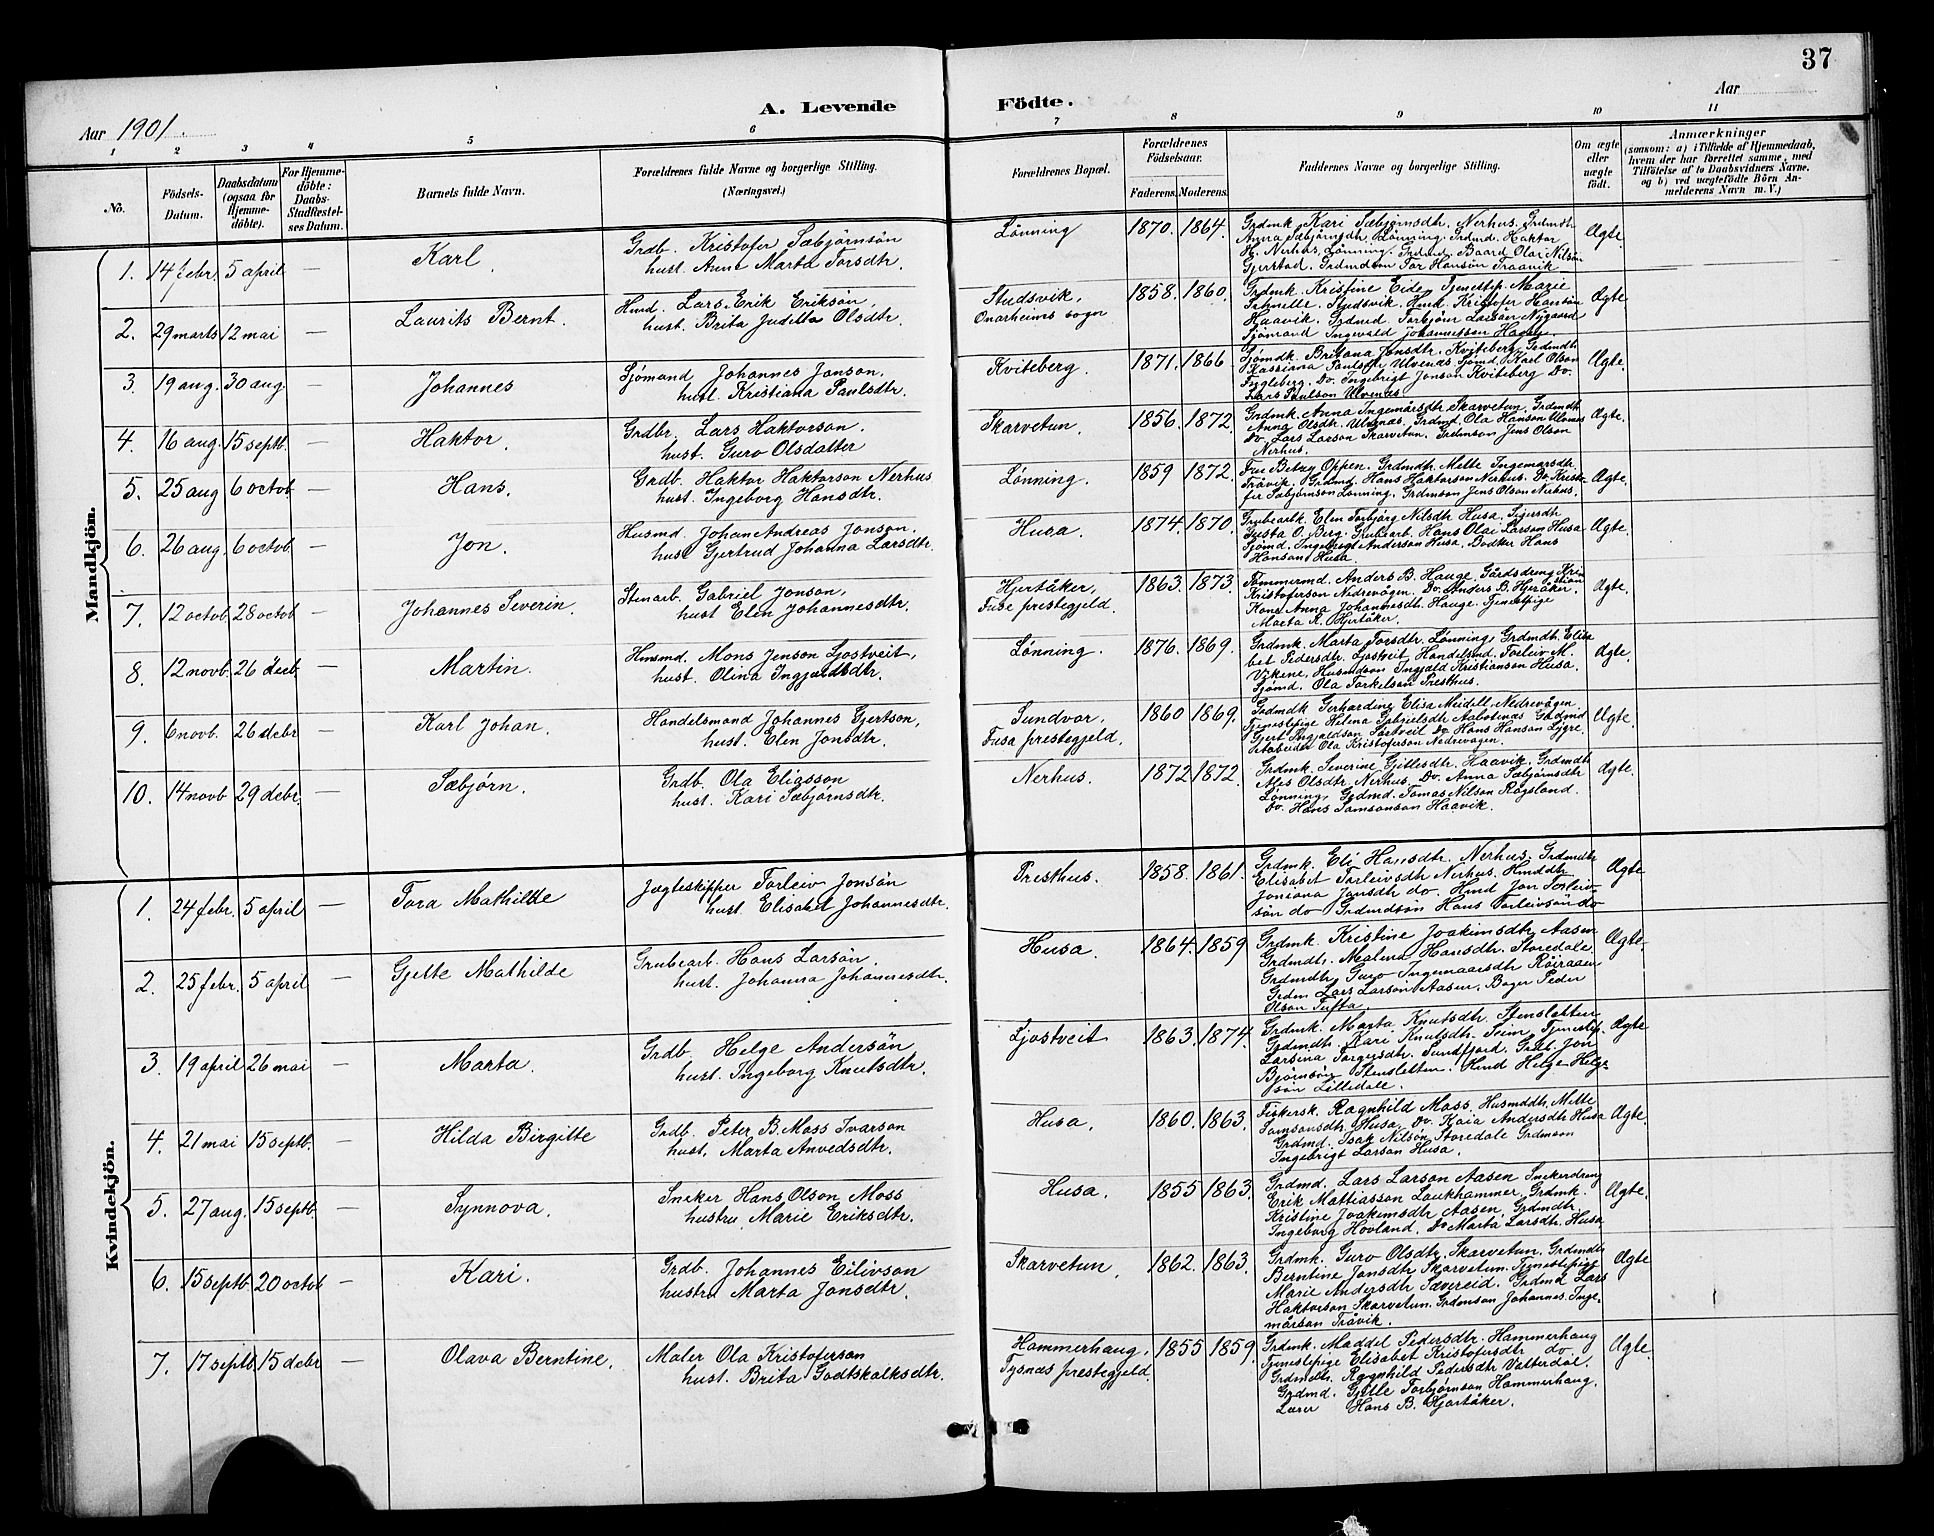 37
A. Levende Födte.
Aar 1901.
Aar
1 2 3 4 5 6 7 8 9 10 11
No.
Födsels-Datum.
Daabsdatum (ogsaa for Hjemme-döbte).
For Hjemme-döbte: Daabs-Stadfæstelses Datum.
Barnets fulde Navn.
Forældrenes fulde Navne og borgerlige Stilling.
(Næringsvei.)
Forældrenes Bopæl.
Forældrenes Födselsaar.
Faderens. Moderens.
Faddernes Navne og borgerlige Stilling.
Om ægte eller uægte födt.
Anmærkninger
(saasom: a) i Tilfælde af Hjemmedaab, hvem der har forrettet samme, med Tilföielse af to Daabsvidners Navne, og b) ved uægtefödte Börn Anmelderens Navn m. V.)
Mandkjön.
1. 14 febr. 5 april — Karl.
Grdb. Kristofer Sæbjörnsön
hust. Anne Marta Torsdtr.
Lønning 1870. 1864.
Grdmk. Kari Sæbjørnsdtr. Nerhus, Grdmdtr.
Anna Sæbjörnsdtr. Lönning, Grdmd. Haktor
H. Nerhus, Lönning, Grdmd. Baard Olai Nilsön
Gjerstad. Grdmdsön Tor Hansön Traavik
Ægte
2. 29 marts 12 mai — Laurits Bernt.
Husmd. Lars Erik Eriksön,
hust. Brita Juditta Olsdtr.
Studsvik,
Onarheims sogn
1858. 1860.
Grdmk. Kristine Eide, Tjenestep. Marie
Schnelle, Studsvik. Hmd. Kristofer Hansön
Haavik. Grdmd Torbjörn Larsön Nygaard
Sjömand Ingevald Johannesson
Ægte
3. 19 aug. 30 aug. — Johannes
Sjömand Johannes Jonson,
hust. Kristiana Paulsdtr.
Kviteberg. 1871. 1866
Sjømdk. Britana Jonsdtr. Kviteberg, Grdmdtr.
Kassiana Paulsdtr. Ulvenæs, Sjømd. Karl Olson
Fugleberg. Do. Ingebrigt Jonson Kviteberg Do.
Lars Paulson Ulvenæs
Ægte.
4. 16 aug. 15 septb. — Haktor.
Grdbr. Lars Haktorson.
hust. Guro Olsdatter
Skarvetun. 1856. 1872.
Grdmk. Anna Ingemårsdtr Skarvetun. Grdmdtr.
Anna Olsdtr. Ulvenæs, Grdmd. Ola Hanson Ulvenæs
Do. Lars Larson Skarvetun. Grdmson Jens Olson
Nerhus.
Ægte.
5. 25 aug 6 octob. — Hans.
Grdb. Haktor Haktorson Nerhus
hust. Ingeborg Hansdtr.
Lønning. 1859 1872.
Fru Betzy Oppen. Grdmdtr. Mette Ingemarsdtr.
Tråvik. Grdmd. Hans Haktorson Nerhus. Do. Kristo-
fer Sæbjørnson Lønning. Grdmson Jens Olson Nerhus.
Ægte.
6. 26 aug. 6 octob. — Jon.
Husmd. Johan Andreas Jonson.
hust Gjertrud Johanna Larsdtr.
Husa. 1874. 1870.
Grubearbk. Elen Torbjörg Nilsdtr Husa.
Gusta O. Berg. Grubearb. Hans Olai Larson Husa
Sjömd. Ingebrigt Anderson Husa. Bødker Hans
Hanson Husa
Ægte
7. 12 octob. 28 octob — Johannes Severin.
Stenarb. Gabriel Jonson,
hust Elen Johannesdtr.
Hjertåker,
Fuse prestegjeld.
1863. 1873.
Tømmermd. Anders B. Hauge. Gårdsdreng Kristian
Kristoferson Nedrevågen. Do. Anders B. Hjertåker.
Kone Anna Johannesdtr. Hauge. Tjenestpige
Marta K. Hjertåker.
Ægte.
8. 12 novb. 26 decb — Martin.
Husmd. Mons Jenson Ljostveit,
hust. Olina Ingjaldsdtr.
Lønning. 1876. 1869.
Grdmk. Marta Torsdtr. Lönning, Grdmdtr. Elisa
bet Pedersdtr. Ljostveit Handelsmd. Torleiv M.
Vikene, Husmdson Ingjald Kristianson Husa.
Sjömd. Ola Torkelson Presthus.
Ægte.
9. 6 novb. 26 debr — Karl Johan.
Handelsmand Johannes Gjertson,
hust. Elen Jonsdtr.
Sundvor.
Fusa prestegjeld.
1860 1869.
Grdmdk Gerhardine Elisa Meidell Nedrevågen
Tjenestepige Helena Gabrielsdtr Aabotsnæs Grdmd
Gjert Ingjaldson Sørtveit Do. Hans Hanson Lygre.
Arbeider Ola Kristoferson Nedrevågen.
Ægte.
10. 14 novb 29 debr. — Sæbjørn.
Grdb. Ola Eliasson
hust. Kari Sæbjørnsdtr.
Nerhus. 1872 1872.
Grdmk. Severine Gjillesdtr. Haavik. Grdmdtr
Ales Olsdtr. Nerhus, Do. Anna Sæbjørnsdtr
Lönning, Grdmd. Tomas Nilson Røgsland.
Do. Hans Samsonson Haavik.
Ægte.
Kvindekjön.
1. 24 febr. 5 april — Tora Mathilde
Jægteskipper Torleiv Jonsön
hust. Elisabet Johannesdtr.
Presthus. 1858. 1861.
Grdmk. Eli Hansdtr. Nerhus. Grdmdtr
Elisabet Torleivsdtr Nerhus, Hmddtr
Jonsana Jonsdtr do. Hmd Jon Torleiv-
sön do Grdmdsön Hans Torleivsön do
Ægte
2. 25 febr. 5 april — Gjette Mathilde
Grubearb. Hans Larsön.
hust. Johanna Johannesdtr.
Husa. 1864. 1859
Grdmk. Kristine Joakimsdtr, Aasen
Grdmdtr. Malena Hansdtr. Storedale
Grdmdtr. Guro Ingemaarsdtr Röiraaen
Grdm Lars Larsön Aasen, Bager Peder
Olson Tufta
Ægte.
3. 19 april 26 mai — Marta.
Grdb Helge Andersön
hust. Ingeborg Knutsdtr.
Ljostveit 1863. 1874.
Grdmk. Marta Knutsdtr. Stensletten
Grdmdtr. Kari Knutsdtr. Seim, Tjenestep.
Larsina Torgersdtr. Sundfjord, Grdb. Jon
Björnsön Stensletten. Hmd Helge Helge-
sön Lilledale.
Ægte
4. 21 mai 15 septb. — Hilda Birgitte
Grdb. Peter B. Moss Ivarson
hust. Marta Anvedsdtr.
Husa. 1860. 1863.
Fiskersk. Ragnhild Moss. Husmddtr. Mitte
Samsonsdtr. Husa, Do. Kaia Andersdtr. Husa
Grdmd. Isak Nilsön Storedale Grdmson
Ingebrigt Larson Husa.
Ægte.
5. 27 aug. 15 septb. — Synnova.
Sneker Hans Olson Moss
hustru Marie Eriksdtr.
Husa. 1855 1863.
Grdmd. Lars Larson Aasen Snekerdreng
Erik Mattiasson Laukhammer, Grdmk.
Kristine Joakimsdtr Aasen, Grdmdtr.
Ingeborg Hovland. Do Marta Larsdtr. Husa
Ægte.
6. 15 septb. 20 octob — Kari.
Grdb. Johannes Eilivson
hustru Marta Jonsdtr.
Skarvetun. 1862. 1863.
Grdmk. Guro Olsdtr. Skarvetun. Grdmdtr
Berntine Jonsdtr Skarvetun. Tjenestepige
Marie Andersdtr Sævereid. Grdmd Lars
Haktorson Skarvetun. Grdmson Johannes Inge-
mårson Tråvik.
Ægte
7. 17 septb 15 debr — Olava Berntine.
Maler Ola Kristoferson
hust. Brita Godtskalksdtr.
Hammerhaug,
Tysnæs prestegjeld.
1855 1859.
Grdmk. Maddel Pedersdtr. Hammerhaug
Tjenestepige Elisabet Kristofersdtr do
Grdmdtr. Ragnhild Pedersdtr Vatterdal.
Grdmd. Gjelle Torbjörnson Hammerhaug.
Lærer Hans B. Hjortåker.
Ægte.